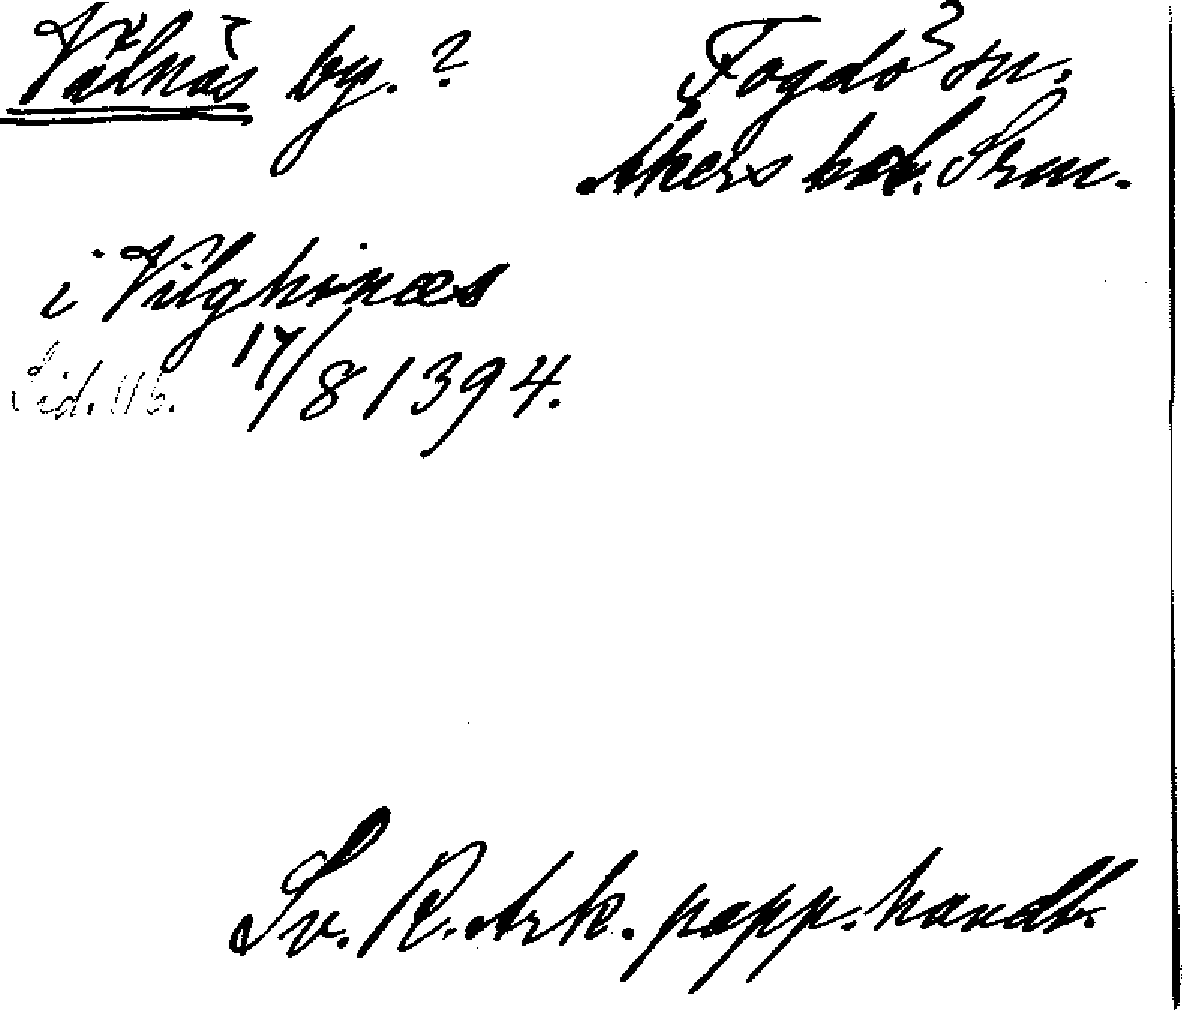 Vålnäs by. ?
Fogdö sn.
Åkers hd. Srm.
i Vilghinæs
Lid. 116. 17/8 1394.
Sv. R. Ark. papp. handl.